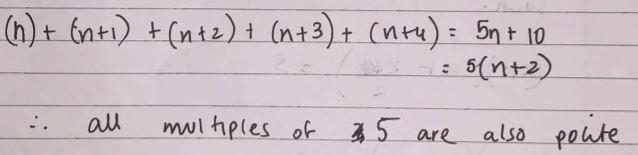 (n) + (n+1) + (n+2) + (n+3) + (n+4) = 5n + 10
= 5(n+2)
∴ all multiples of 5 are also polite